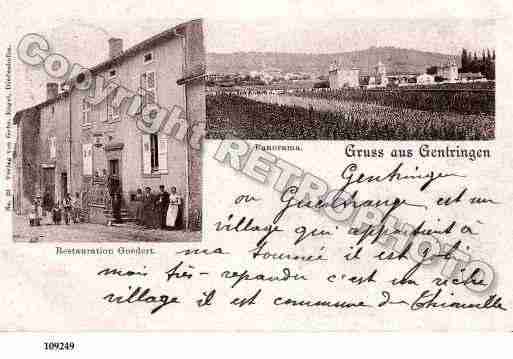 Verlag von Gebr. Roget, Diedenhofen.
No. 20
Panorama.
Gruss aus Gentringen
Restauration Goedert.
Gentringen est
ou Guentrange est un
village qui appartient à
ma tournée il est joli
mais très-répandu c'est un riche
village il est commune de Thionville
www.retrophoto.com
109249